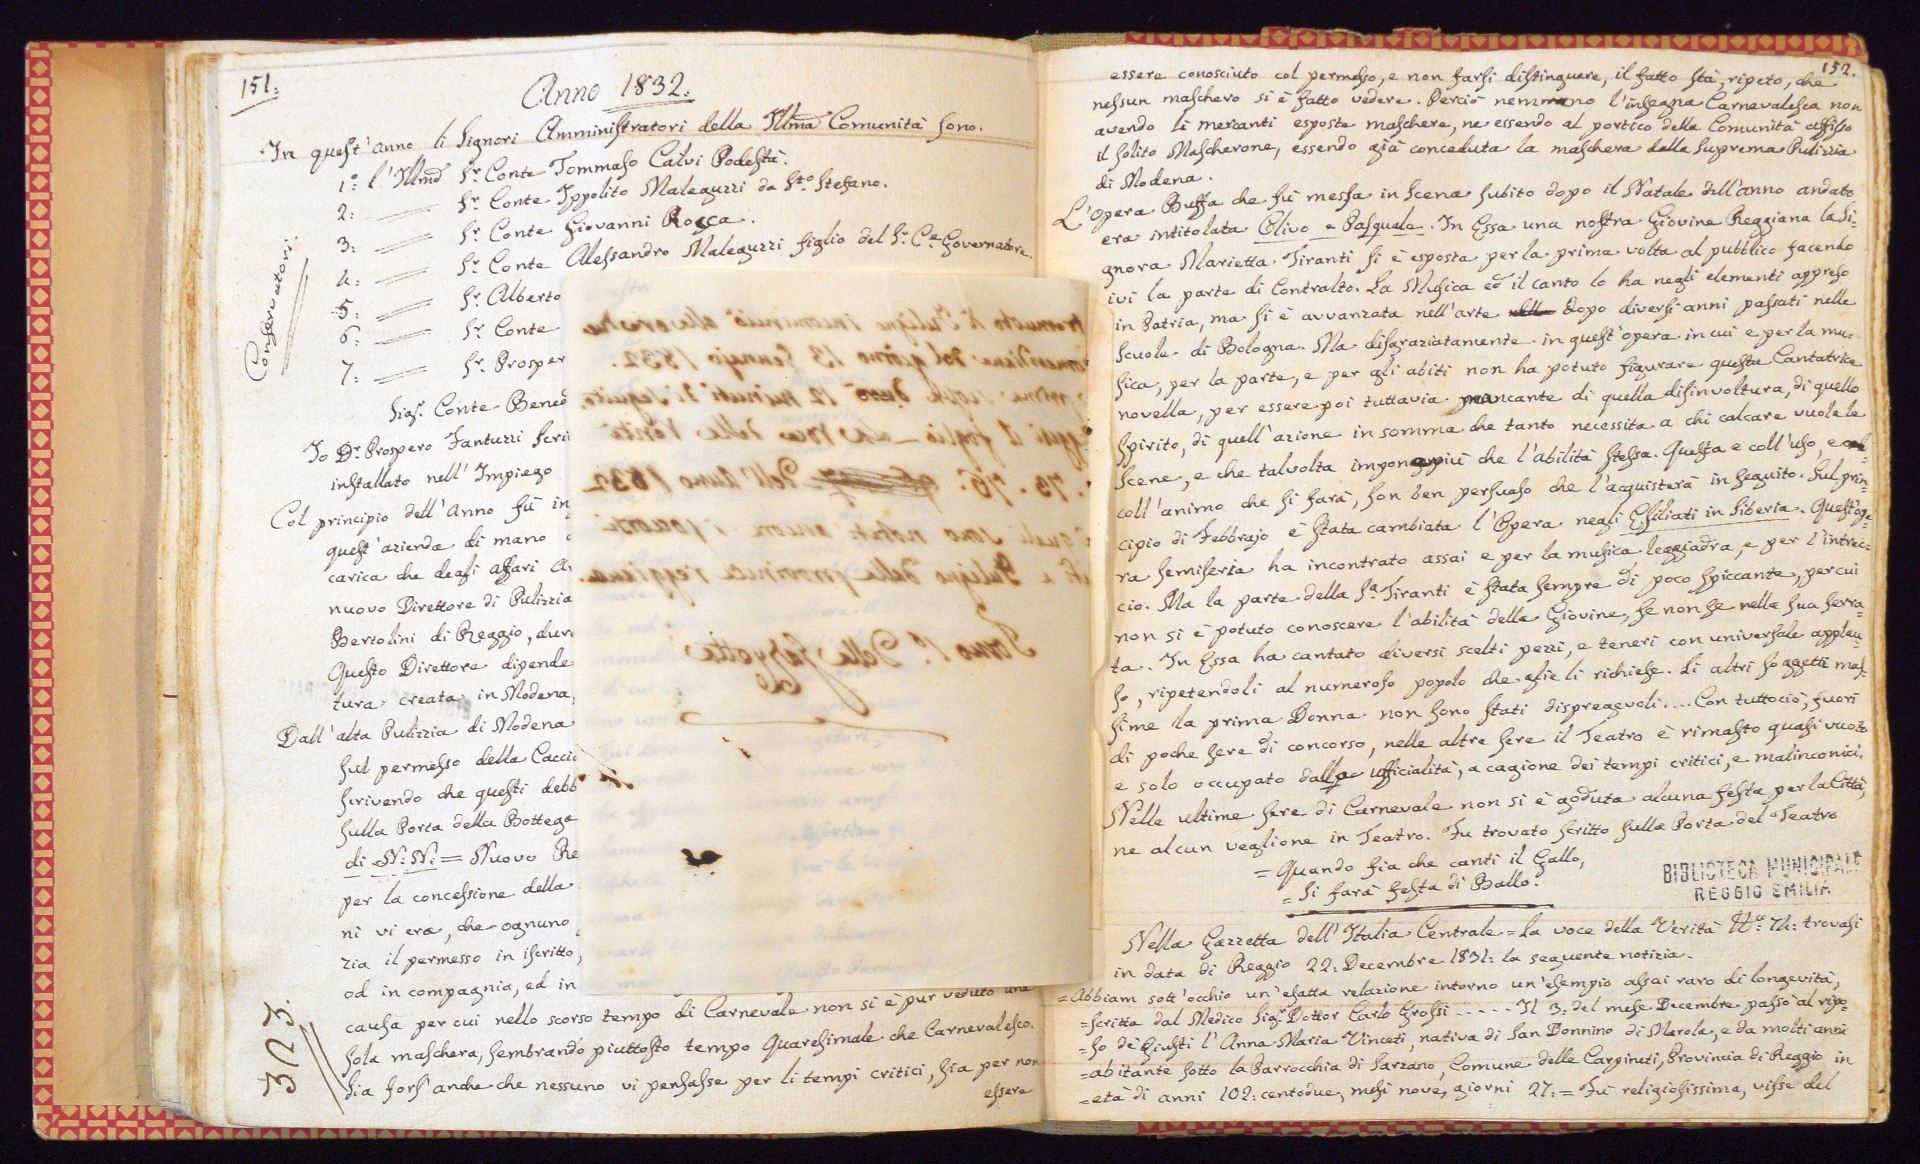 151:
Anno 1832:
In quest'anno li Signori Amministratori della Illma Comunità sono.
1o: l'Illmo Sr. Conte Tommaso Calvi Podestà.
2: Sr. Conte Ippolito Maleguzzi da Sto. Stefano.
3: Sr. Conte Giovanni Rocca.
4: Sr. Conte Alessandro Maleguzzi figlio del Sr. Ce. Governatore.
5: Sr. Alberto
6: Sr. Conte
7: Sr. Prosper
Conservatori:
Sigr. Conte Bened
Io Dr. Prospero Fantuzzi Scri
installato nell'Impiego
Col principio dell'Anno fù in
quest'azienda di mano
carica che degli affari
nuovo Direttore di Pulizzia
Bertolini di Reggio, dura
Questo Direttore dipende
tura creata in Modena,
Dall'alta Pulizzia di Modena
sul permesso della Caccia
scrivendo che questi debb
sulla Porta della Bottega
di N: N: = Nuovo Re
per la concessione della
ni vi era, che ognuno
zia il permesso in iscritto,
od in compagnia, ed in
causa per cui nello scorso tempo di Carnevale non si è pur veduto una
sola maschera, sembrando piuttosto tempo Quaresimale che Carnevalesco.
Sia fors'anche che nessuno vi pensasse per li tempi critici, sia per non
essere
323.
152.
essere conosciuto col permesso, e non farsi distinguere, il fatto stà, ripeto, che
nessun maschero si è fatto vedere. Perciò nemmeno l'insegna Carnevalesca non
avendo li mercanti esposte maschere, ne essendo al portico della Comunità affisso
il solito Mascherone, essendo già conceduta la maschera dalla Suprema Pulizzia
di Modena.
L'Opera Buffa che fù messa in Scena subito dopo il Natale dell'anno andato
era intitolata Olivo e Pasquale. In Essa una nostra Giovine Reggiana la Si-
gnora Marietta Tiranti si è esposta per la prima volta al pubblico facendo
ivi la parte di Contralto. La Musica ed il canto lo ha negli elementi appreso
in Patria, ma si è avvanzata nell'arte dopo diversi anni passati nelle
Scuole di Bologna. Ma disgraziatamente in quest'opera in cui e per la mu-
sica, per la parte, e per gli abiti non ha potuto figurare questa Cantatrice
novella, per essere poi tuttavia mancante di quella disinvoltura, di quello
Spirito, di quell'azione in somma che tanto necessita a chi calcare vuole le
Scene, e che talvolta impone più che l'abilità stessa. Questa e coll'uso, e
coll'animo che si farà, son ben persuaso che l'acquisterà in seguito. Sul prin-
cipio di Febbrajo è stata cambiata l'Opera negli Esiliati in Siberia. Quest'ope-
ra semiseria ha incontrato assai e per la musica leggiadra, e per l'intrec-
cio. Ma la parte della Sa. Tiranti è stata sempre di poco spiccante, percui
non si è potuto conoscere l'abilità della Giovine, se non se nella sua serra-
ta. In Essa ha cantato diversi scelti pezzi, e teneri con universale applau-
so, ripetendoli al numeroso popolo che glieli richiese. Li altri soggetti mas-
sime la prima Donna non sono stati dispregevoli .... Con tuttociò, fuori
di poche sere di concorso, nelle altre sere il Teatro è rimasto quasi vuoto
e solo occupato dalla ufficialità, a cagione dei tempi critici, e malinconici.
Nelle ultime sere di Carnevale non si è goduta alcuna festa per la Città,
ne alcun veglione in Teatro. Fu trovato scritto sulla Porta del Teatro
= Quando fia che canti il Gallo,
= Si farà festa di Ballo.
BIBLIOTECA MUNICIPALE
REGGIO EMILIA
Nella Gazzetta dell'Italia Centrale = La voce della Verità No: 74: trovasi
in data di Reggio 22: Decembre 1831: la seguente notizia.
= Abbiam sott'occhio un'esatta relazione intorno un'esempio assai raro di longevità,
= scritta dal Medico Sigr. Dottor Carlo Grossi ..... Il 3: del mese Decembre passò al ripo-
= so de' Giusti l'Anna Maria Vinceti, nativa di San Donnino di Marola, e da molti anni
= abitante sotto la Parrocchia di Sarzano, Comune delle Carpineti, Provincia di Reggio in
= età di anni 102: centodue, mesi nove, giorni 27: = Fù religiosissima, visse del